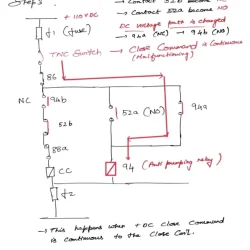 Step 3
→ Contact 52b become NC
→ Contact 52a become NO
+ 110V DC
DC Voltage path is changed
→ 94a (NC) → 94b (NO)
f1 (fuse)
TNC Switch → Close Command is Continuous
(Malfunctioning)
86
NC
94b
52a (NO)
94a
52b
88a
94 (Anti pumping relay)
CC
f2
→ This happens when +DC Close Command
is continuous to the Close Coil.